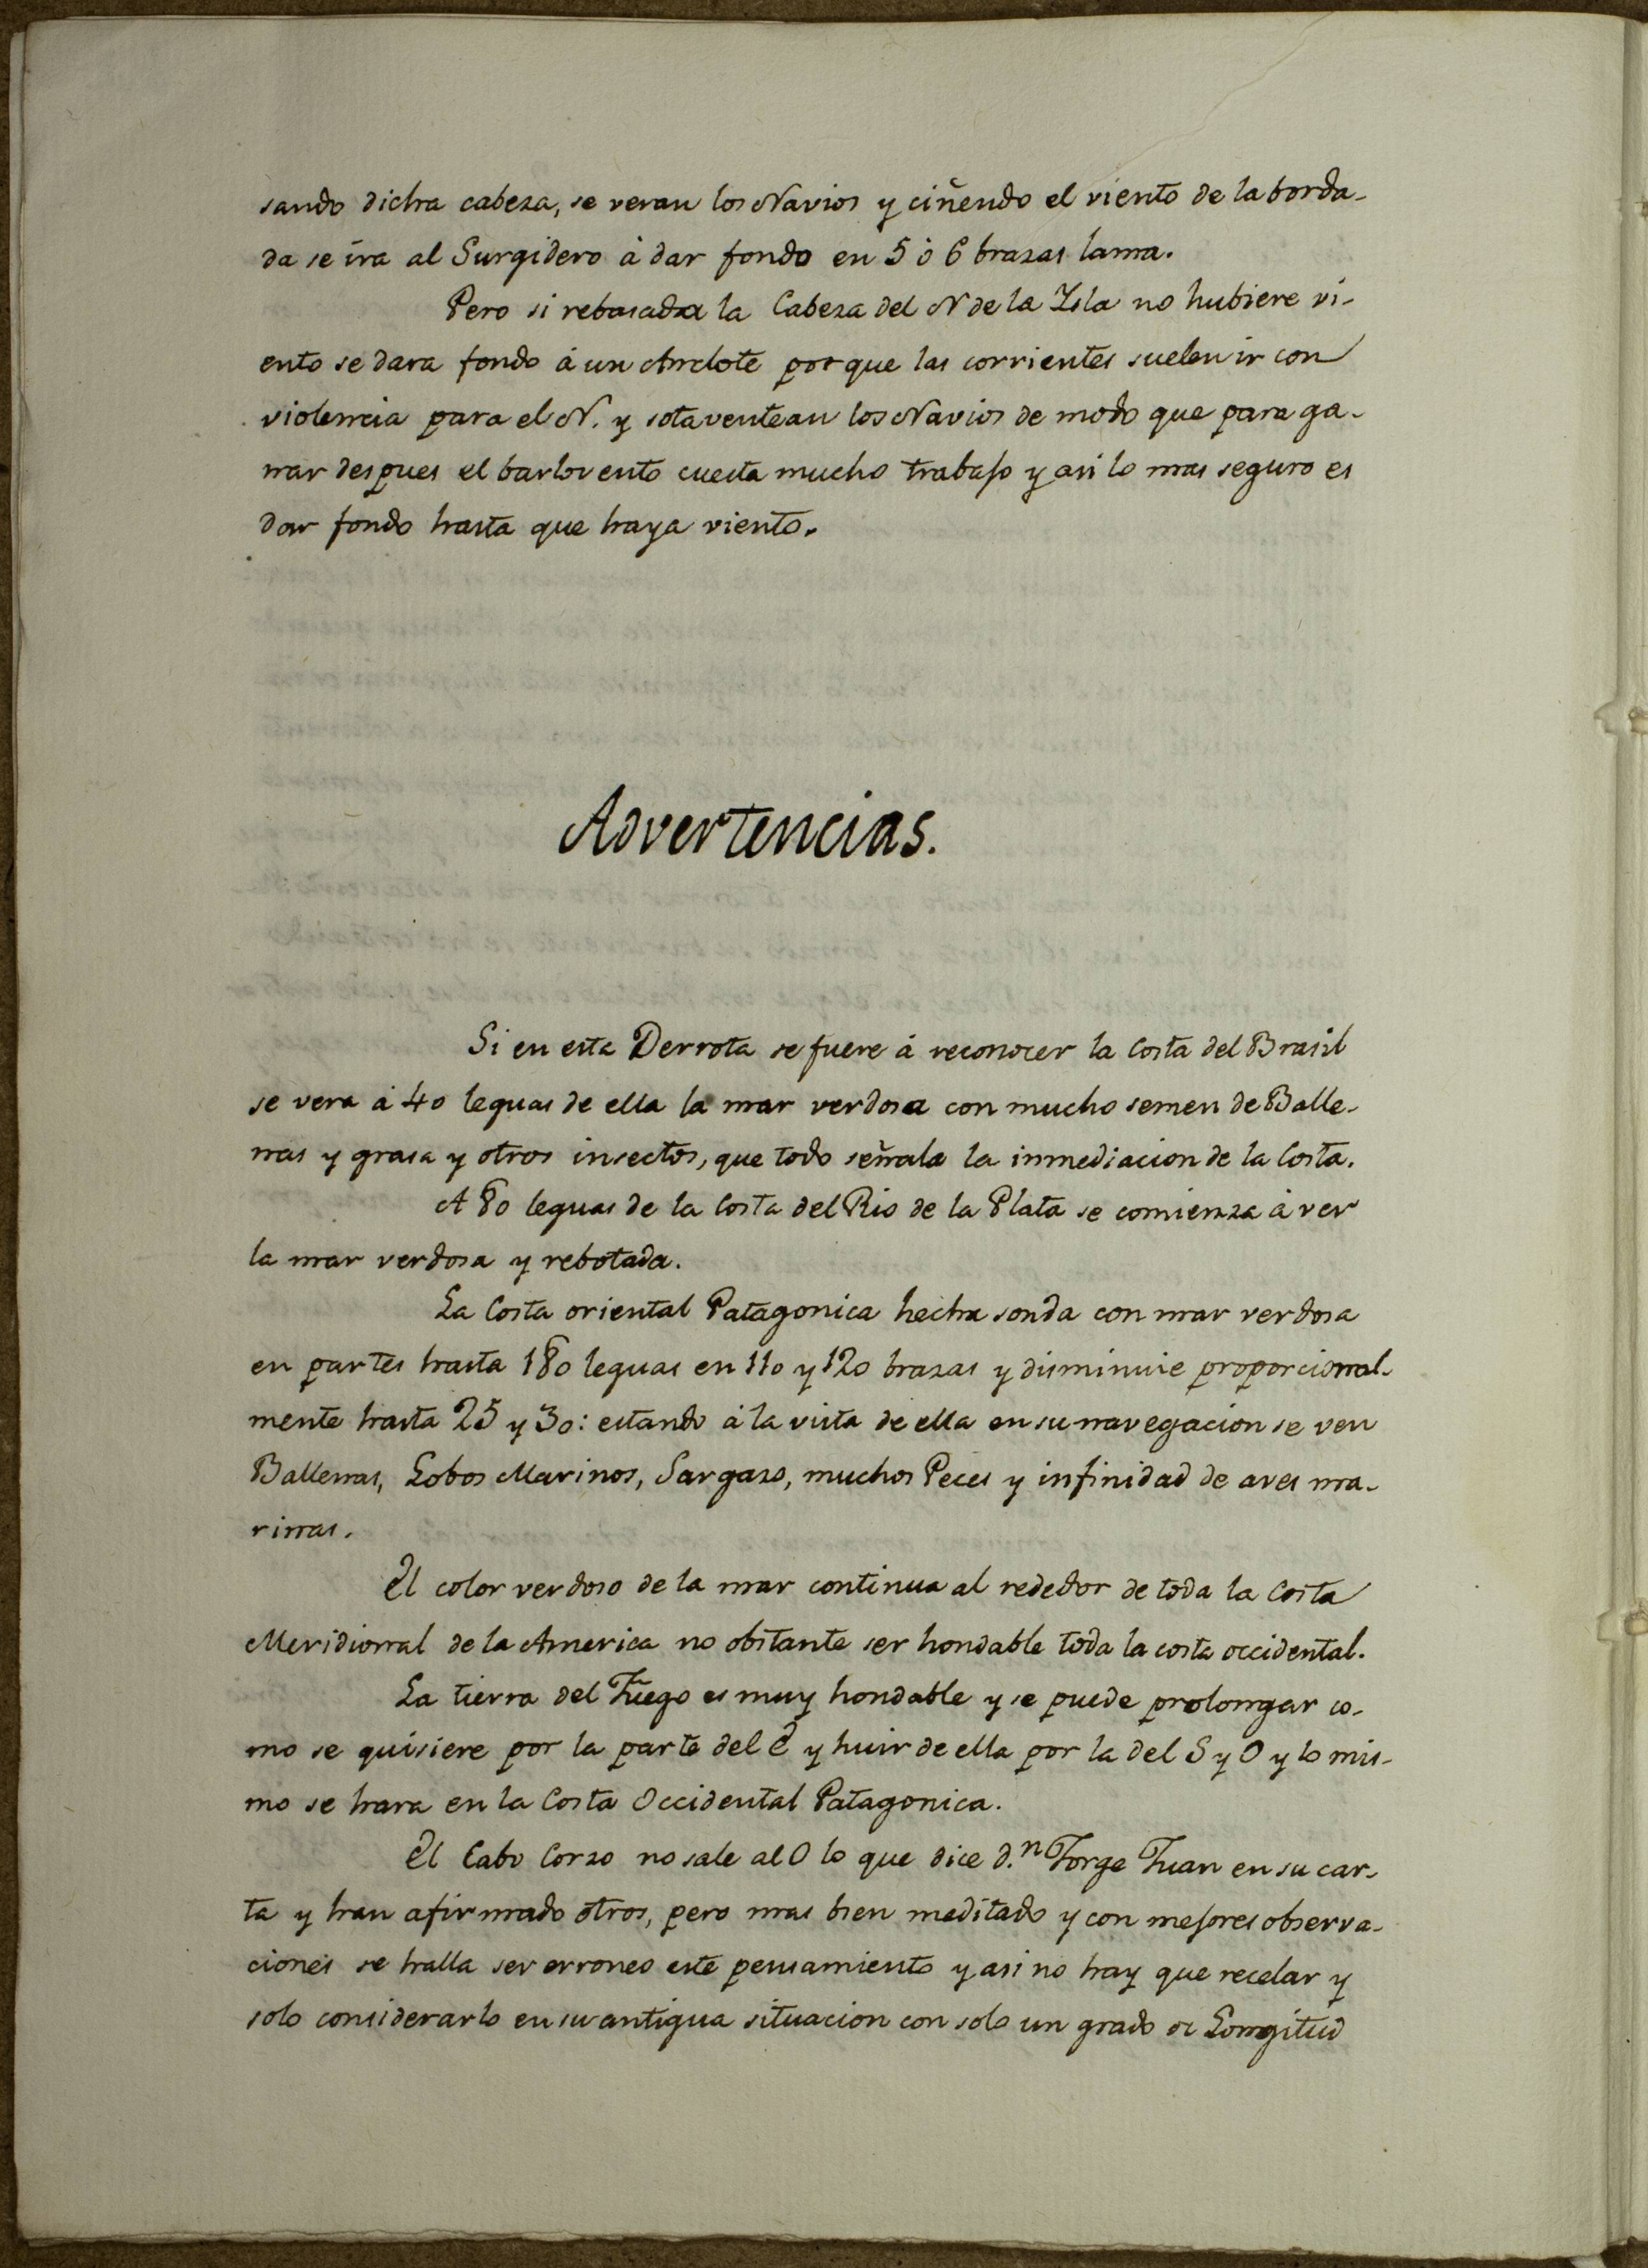 sando dicha cabeza, se veran los Navios y ciñendo el viento de la borda-
da se ira al Surgidero à dar fondo en 5 ò 6 brazas lama.
Pero si rebasada la Cabeza del N de la Ysla no hubiere vi-
ento se dara fondo à un Anclote porque las corrientes suelen ir con
violencia para el N. y sotaventean los Navios de modo que para ga-
nar despues el barlovento cuesta mucho trabajo y asi lo mas seguro es
dar fondo hasta que haya viento.
Advertencias.
Si en esta Derrota se fuere à reconocer la Costa del Brasil
se vera à 40 leguas de ella la mar verdosa con mucho semen de Balle-
nas y grasa y otros insectos, que todo señala la inmediacion de la Costa.
A 80 leguas de la Costa del Rio de la Plata se comienza à ver
la mar verdosa y rebotada.
La Costa oriental Patagonica hecha sonda con mar verdosa
en partes hasta 180 leguas en 110 y 120 brazas y disminuie proporcional-
mente hasta 25 y 30: estando à la vista de ella en su navegacion se ven
Ballenas, Lobos Marinos, Sargazo, muchos Peces y infinidad de aves ma-
rinas.
El color verdoso de la mar continua al rededor de toda la Costa
Meridional de la America no obstante ser hondable toda la costa occidental.
La tierra del Fuego es muy hondable y se puede prolongar co-
mo se quisiere por la parte del E y huir de ella por la del S y O y lo mis-
mo se hara en la Costa Occidental Patagonica.
El Cabo Corzo no sale al O lo que dice d.n Jorge Juan en su car-
ta y han afirmado otros, pero mas bien meditado y con mejores observa-
ciones se halla ser erroneo este pensamiento y asi no hay que recelar y
solo considerarlo en su antigua situacion con solo un grado de Longitud